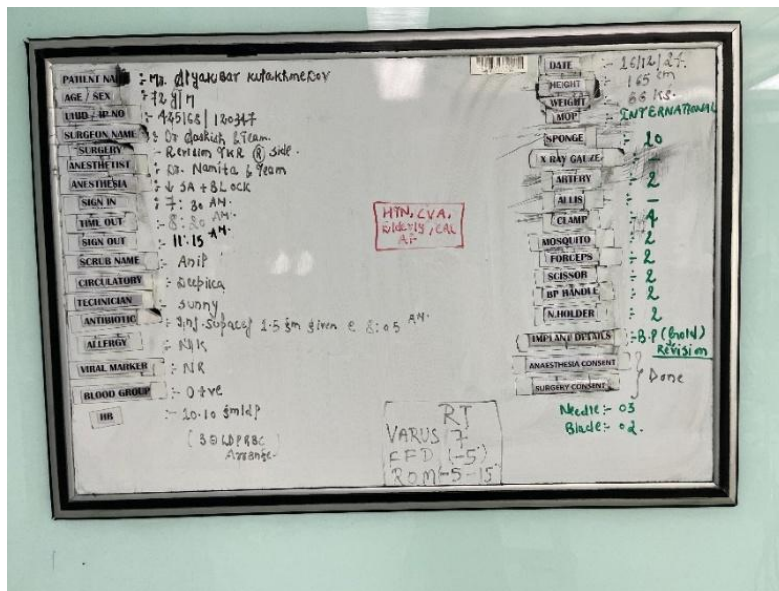 PATIENT NAME :- Mr. Alyakbar Kutakhmedov
AGE / SEX :- 72 y / M
UHID / IP.NO :- 445168 / 120347
SURGEON NAME :- Dr & Team.
SURGERY :- Revision TKR (R) side.
ANESTHETIST :- Dr. Namita & Team
ANESTHESIA :- ↓ SA + BLOCK
SIGN IN :- 7:30 AM.
TIME OUT :- 8:20 AM.
SIGN OUT :- 11:15 AM.
SCRUB NAME :- Anil
CIRCULATORY :- Deepika
TECHNICIAN :- Sunny
ANTIBIOTIC :- Inj. Supacef 1.5 gm given @ 8:05 AM.
ALLERGY :- NIK
VIRAL MARKER :- NR
BLOOD GROUP :- O +ve
HB :- 10.10 gm/dl
Arrange.
HTN, CVA,
Elderly, CAL
RT
VARUS 7
FFD (-5°)
ROM -5 -15°
DATE :- 16/12/24.
HEIGHT :- 165 cm
WEIGHT :- 66 KG.
MOP :- INTERNATIONAL
SPONGE :- 10
X RAY GAUZE :- -
ARTERY :- 2
ALLIS :- -
CLAMP :- 4
MOSQUITO :- 2
FORCEPS :- 2
SCISSOR :- 2
BP HANDLE :- 2
N.HOLDER :- 2
IMPLANT DETAILS :- B.P (Gold)
Revision
ANAESTHESIA CONSENT
SURGERY CONSENT } Done
Needle :- 03
Blade :- 02.